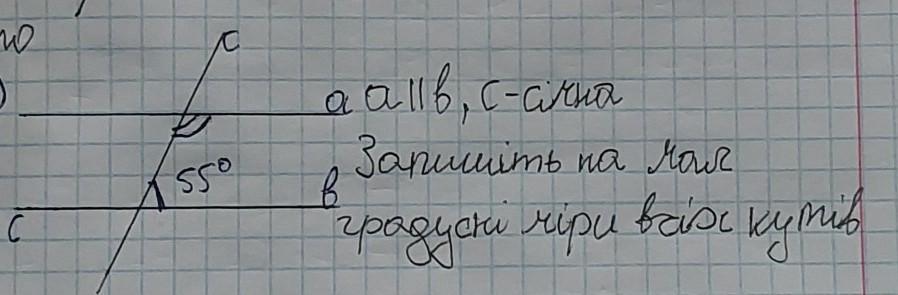 ю
c
)
a a||b, c-січна
55°
b Запишіть на мал
c градусні міри всіх кутів